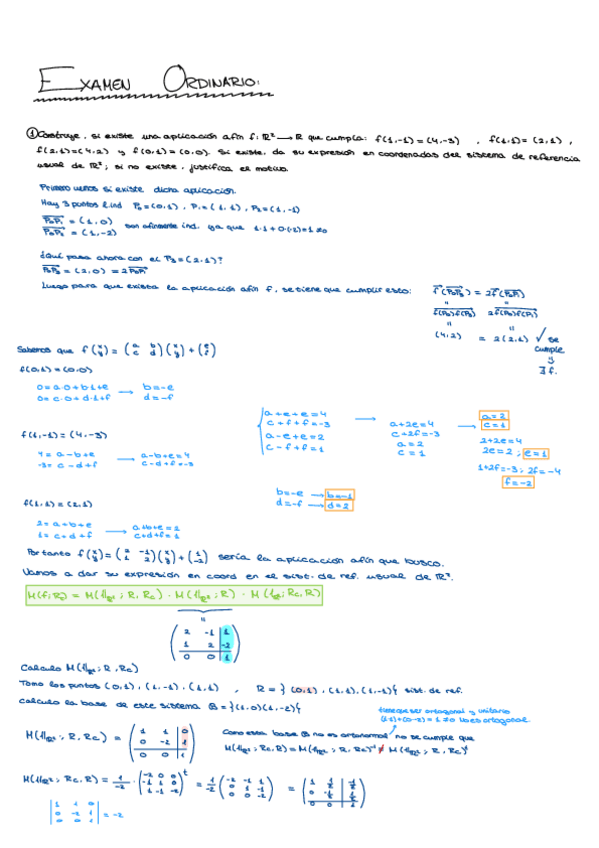 EXAMEN ORDINARIO:
① Construye, si existe una aplicación afín f: ℝ² → ℝ que cumpla: f(1,-1)=(4,-3) , f(1,1)=(2,1),
f(2,1)=(4,2) y f(0,1)=(0,0). Si existe, da su expresión en coordenadas del sistema de referencia
usual de ℝ²; si no existe, justifica el motivo.
Primero vemos si existe dicha aplicación.
Hay 3 puntos l.ind P₀=(0,1), P₁=(1,1), P₂=(1,-1)
P₀P₁ = (1,0)
P₀P₂ = (1,-2)
son afinmente ind. ya que 1·1+0·(-2)=1≠0
¿Qué pasa ahora con el P₃=(2,1)?
P₀P₃ = (2,0) = 2P₀P₁
Luego para que exista la aplicación afín f, se tiene que cumplir esto:
f(P₀P₃) = 2f(P₀P₁)
" "
f(P₀)f(P₃) 2f(P₀)f(P₁)
" "
(4,2) = 2(2,1) ✓ se cumple y ∃ f.
Sabemos que f(x y) = (a b c d)(x y)+(e f)
f(0,1)=(0,0)
0=a·0+b·1+e → b=-e
0=c·0+d·1+f d=-f
f(1,-1)=(4,-3)
4=a-b+e → a-b+e=4
-3=c-d+f c-d+f=-3
f(1,1)=(2,1)
2=a+b+e → a+b+e=1
1=c+d+f c+d+f=1
a+e+e=4
c+f+f=-3
a-e+e=2
c-f+f=1
→ a+2e=4
c+2f=-3
a=2
c=1
→ a=2
c=1
2+2e=4
2e=2; e=1
1+2f=-3; 2f=-4
f=-2
b=-e → b=-1
d=-f → d=2
Por tanto f(x y)=(2 -1 1 2)(x y)+(1 -2) sería la aplicación afín que busco.
Vamos a dar su expresión en coord en el sist. de ref. usual de ℝ².
M(f;Rc) = M(1ℝ²; R, Rc) · M(1ℝ²; R) · M(1ℝ²; Rc, R)
"
2 -1 1
1 2 -2
0 0 1
Calculo M(1ℝ²; R, Rc)
Tomo los puntos (0,1), (1,-1), (1,1) , R={(0,1), (1,1), (1,-1)} sist. de ref.
calculo la base de este sistema B={(1,0)(1,-2)}
tiene que ser ortogonal y unitario
(1·1)+(0·-2)=1≠0 No es ortogonal.
M(1ℝ²; R, Rc) = (1 1 0
0 -2 1
0 0 1)
Como esta base B no es ortonormal no se cumple que
M(1ℝ²; Rc, R) = M(1ℝ²; R, Rc)⁻¹ ≠ M(1ℝ²; R, Rc)ᵗ
M(1ℝ²; Rc, R) = 1/-2 · (-2 0 0
-1 1 0
1 -1 -2)ᵗ = 1/-2 (-2 -1 1
0 1 -1
0 0 -2) = (1 1/2 -1/2
0 -1/2 1/2
0 0 1)
|1 1 0
0 -2 1
0 0 1| = -2